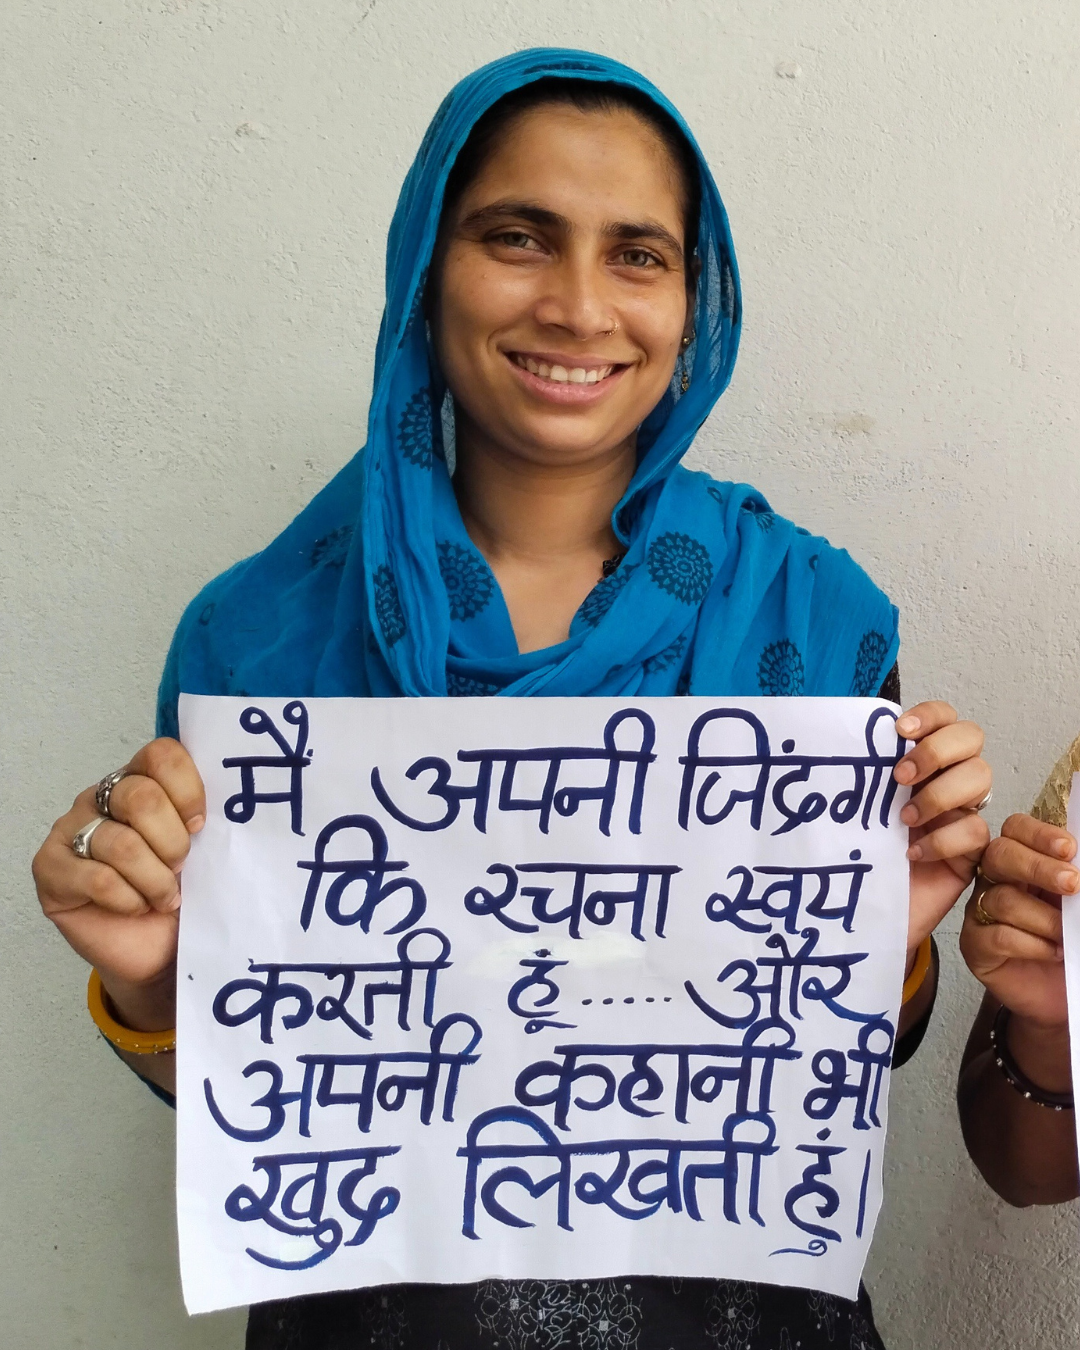 मैं अपनी जिंदगी
कि रचना स्वयं
करती हूं ..... और
अपनी कहानी भी
खुद लिखती हुं।